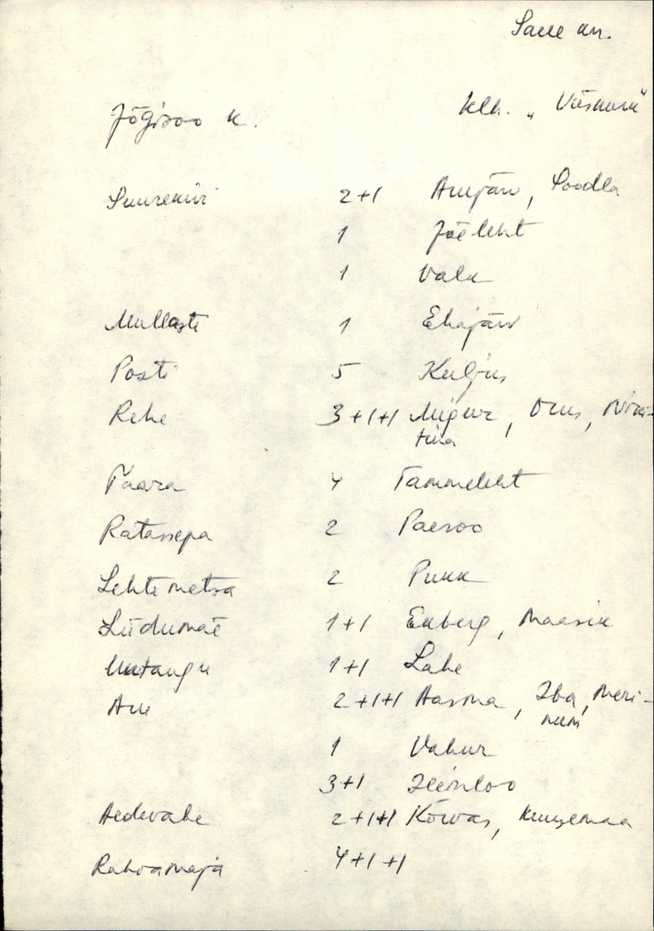 Saue kn.
Jõgisoo k. klh. „ Västrik"
Suurekivi 2+1 Annjärv, Soodla
1 Jõeleht
1 Valk
Mullaste 1 Ehajärv
Posti 5 Kuljus
Rehe 3+1+1 Migur, Orus,
tina
Taara 4 Tammeleht
Ratassepa 2 Paesoo
Lehtemetsa 2 Pukk
Liidumäe 1+1 Ekberg, Maasik
1+1 Lahe
Aru 2+1+1 Aasma, Iba, Meri-
num
1 Vahur
3+1 Heinloo
Aedevahe 2+1+1 Kõivas, Kuusemaa
Rahvamaja 4+1+1